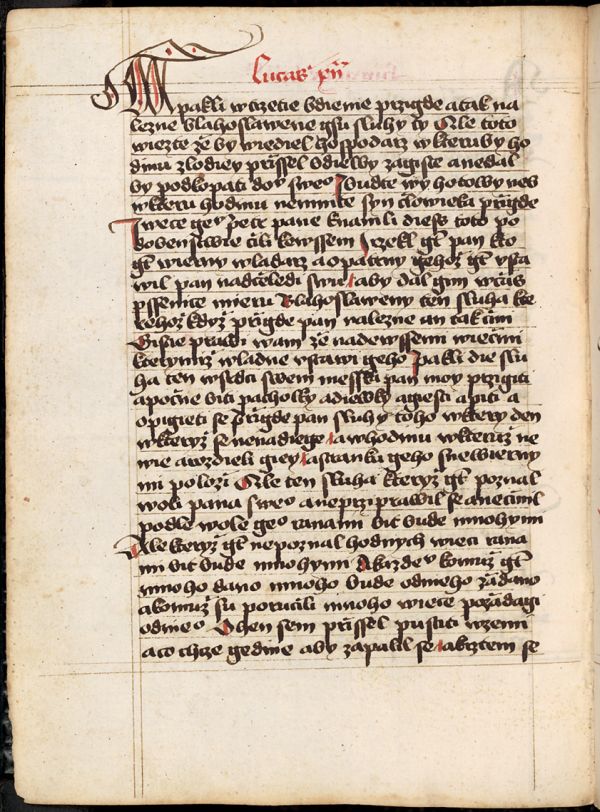 Lucas xii
A pakli w trzetie bdienie przigde a tak na
lezne blahoslawene gsu sluhy ty Ale toto
wiezte ze by wiediel hospodarz w kteruby ho
dinu zlodiey przissel bdielby zagiste a nedal
by podkopati domu sweo J budte wy hotowy neb
w kteru hodinu nemnite syn czlowieka przigde
J wece geo petr pane k namli diess toto po
dobenstwie czili ke wssem J rzekl gt pan kto
gt wierny wladarz a opatrny gehoz gt vsta
wil pan nad czeledi swu aby dal gim w czas
pssenice mieru Blahoslaweny ten sluha kte
rehoz kdyz przigde pan nalezne an tak czini
Gistie prawi wam ze nade wssemi wiecmi
kterymiz wladne vstawi geho Pakli die slu
ha ten w srdci swem messka pan moy przigiti
a pocne biti pacholky a diewky a giesti a piti a
opigieti se przigde pan sluhy toho w ktery den
w kteryz se nenadiege a w hodinu w kteruz ne
wie a rozdieli giey a stranku geho s newierny
mi polozi Ale ten sluha kteryz gt poznal
woli pana sweo a neprziprawil se a neczinil
podle wole geo ranami bit bude mnohymi
Ale kteryz gt nepoznal hodnych wieci rana
mi bit bude mnohymi A kazdeu komuz gt
mnoho dano mnoho bude od nieho zadano
a komuz su poruczili mnoho wiece pozadagi
od nieo Ohen sem przissel pustiti w zemi
a co chcze gedine aby zapalil se a krztem se